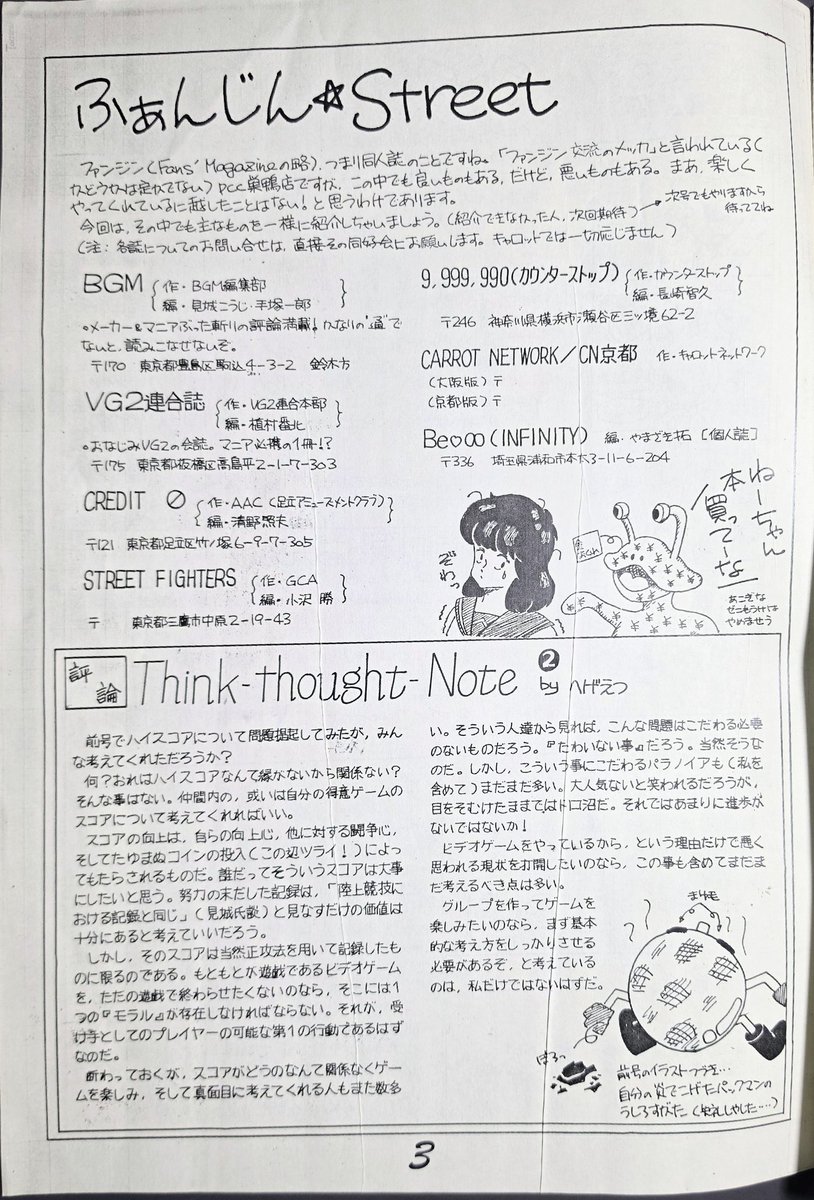 ふぁんじん☆Street
ファンジン(Fans' Magazineの略),つまり同人誌のことですね。「ファンジン交流のメッカ」と言われている(
かどうかは定かでない)pcc巣鴨店ですが,この中でも良いものもある,だけど,悪いものもある。まあ,楽しく
やってくれているに越したことはない!と思うわけであります。
今回は,その中でも主なものを一様に紹介しちゃいましょう。(紹介できなかった人,次回期待)→次号でもやりますから
待っててね
(注:各誌についてのお問い合せは,直接その同好会にお願いします。キャロットでは一切応じません)
BGM {作・BGM編集部
編・見城こうじ・手塚一郎}
◦メーカー&マニアぶった斬りの評論満載!かなりの"通"で
ないと,読みこなせないぞ。
〒170 東京都豊島区駒込4-3-2 鈴木方
VG2連合誌 {作・VG2連合本部
編・植村番北}
◦おなじみVG2の会誌。マニア必携の1冊!?
〒175 東京都板橋区高島平2-1-7-303
CREDIT 0 {作・AAC(足立アミューズメントクラブ)
編・清野 夫}
〒121 東京都足立区竹ノ塚6-9-7-305
STREET FIGHTERS {作・GCA
編・小沢 勝}
〒 東京都三鷹市中原2-19-43
9,999,990(カウンターストップ) {作・カウンターストップ
編・長崎智久}
〒246 神奈川県横浜市瀬谷区三ッ境62-2
CARROT NETWORK/CN京都 作・キャロットネットワーク
(大阪版)〒
(京都版)〒
Be♡∞(INFINITY) 編・やまざき拓[個人誌]
〒336 埼玉県浦和市本太3-11-6-204
ねーちゃん
本買ってーな
ぞわっ
あこぎな
ゼニもうけは
やめませう
評論
Think-thought-Note ❷
by へげえつ
前号でハイスコアについて問題提起してみたが,みん
な考えてくれただろうか?
何?おれはハイスコアなんて縁がないから関係ない?
そんな事はない。仲間内の,或いは自分の得意ゲームの
スコアについて考えてくれればいい。
スコアの向上は,自らの向上心,他に対する闘争心,
そしてたゆまぬコインの投入(この辺ツライ!)によっ
てもたらされるものだ。誰だってそういうスコアは大事
にしたいと思う。努力の末だした記録は,「陸上競技に
おける記録と同じ」(見城氏談)と見なすだけの価値は
十分にあると考えていいだろう。
しかし,そのスコアは当然正攻法を用いて記録したも
のに限るのである。もともとが遊戯であるビデオゲーム
を,ただの遊戯で終わらせたくないのなら,そこには1
つの『モラル』が存在しなければならない。それが,受
け手としてのプレイヤーの可能な第1の行動であるはず
なのだ。
断わっておくが,スコアがどうのなんて関係なくゲー
ムを楽しみ,そして真面目に考えてくれる人もまた数多
い。そういう人達から見れば,こんな問題はこだわる必要
のないものだろう。『たわいない事』だろう。当然そうな
のだ。しかし,こういう事にこだわるパラノイアも(私を
含めて)まだまだ多い。大人気ないと笑われるだろうが,
目をそむけたままではドロ沼だ。それではあまりに進歩が
ないではないか!
ビデオゲームをやっているから,という理由だけで悪く
思われる現状を打開したいのなら,この事も含めてまだま
だ考えるべき点は多い。
グループを作ってゲームを
楽しみたいのなら,まず基本
的な考え方をしっかりさせる
必要があるぞ,と考えている
のは,私だけではないはずだ。
ぽろっ
前号のイラストつづき…
自分の炎でこげたパックマンの
うしろすがた
3